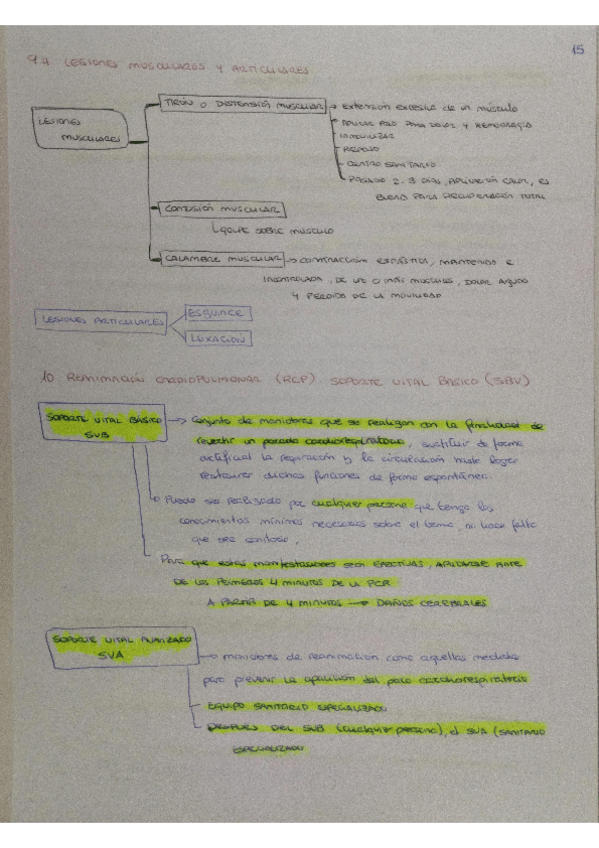 15
9.4 LESIONES MUSCULARES Y ARTICULARES
LESIONES MUSCULARES
TIRÓN O DISTENSIÓN MUSCULAR → EXTENSIÓN EXCESIVA DE UN MÚSCULO
APLICAR FRIO PARA DOLOR Y HEMORRAGIA
INMOVILIZAR
REPOSO
CENTRO SANITARIO
PASADO 2-3 DÍAS, APLICACIÓN CALOR, ES
BUENO PARA RECUPERACIÓN TOTAL
CONTUSIÓN MUSCULAR
GOLPE SOBRE MÚSCULO
CALAMBRE MUSCULAR → CONTRACCIÓN ESPÁSTICA, MANTENIDA E
INCONTROLADA, DE UNO O MÁS MUSCULOS, DOLOR AGUDO
Y PERDIDA DE LA MOVILIDAD
LESIONES ARTICULARES
ESGUINCE
LUXACIÓN
10 REANIMACIÓN CARDIOPULMONAR (RCP). SOPORTE VITAL BÁSICO (SBV)
SOPORTE VITAL BÁSICO
SVB
→ Conjunto de maniobras que se realizan con la finalidad de
revertir un parada cardiorespiratoria, sustituir de forma
artificial la respiración y la circulación hasta lograr
restaurar dichas funciones de forma espontánea.
Puede ser realizado por cualquier persona que tenga los
conocimientos mínimos necesarios sobre el tema, no hace falta
que sea sanitario.
Para que estas manifestaciones sean EFECTIVAS, APLICARSE ANTE
DE LOS PRIMEROS 4 MINUTOS DE LA PCR
A PARTIR DE 4 MINUTOS → DAÑOS CEREBRALES
SOPORTE VITAL AVANZADO
SVA
maniobras de reanimación como aquellas medidas
para prevenir la aparición del paro cardiorespiratorio
EQUIPO SANITARIO ESPECIALIZADO
DESPUES DEL SVB (cualquier persona), el SVA (SANITARIO
ESPECIALIZADO